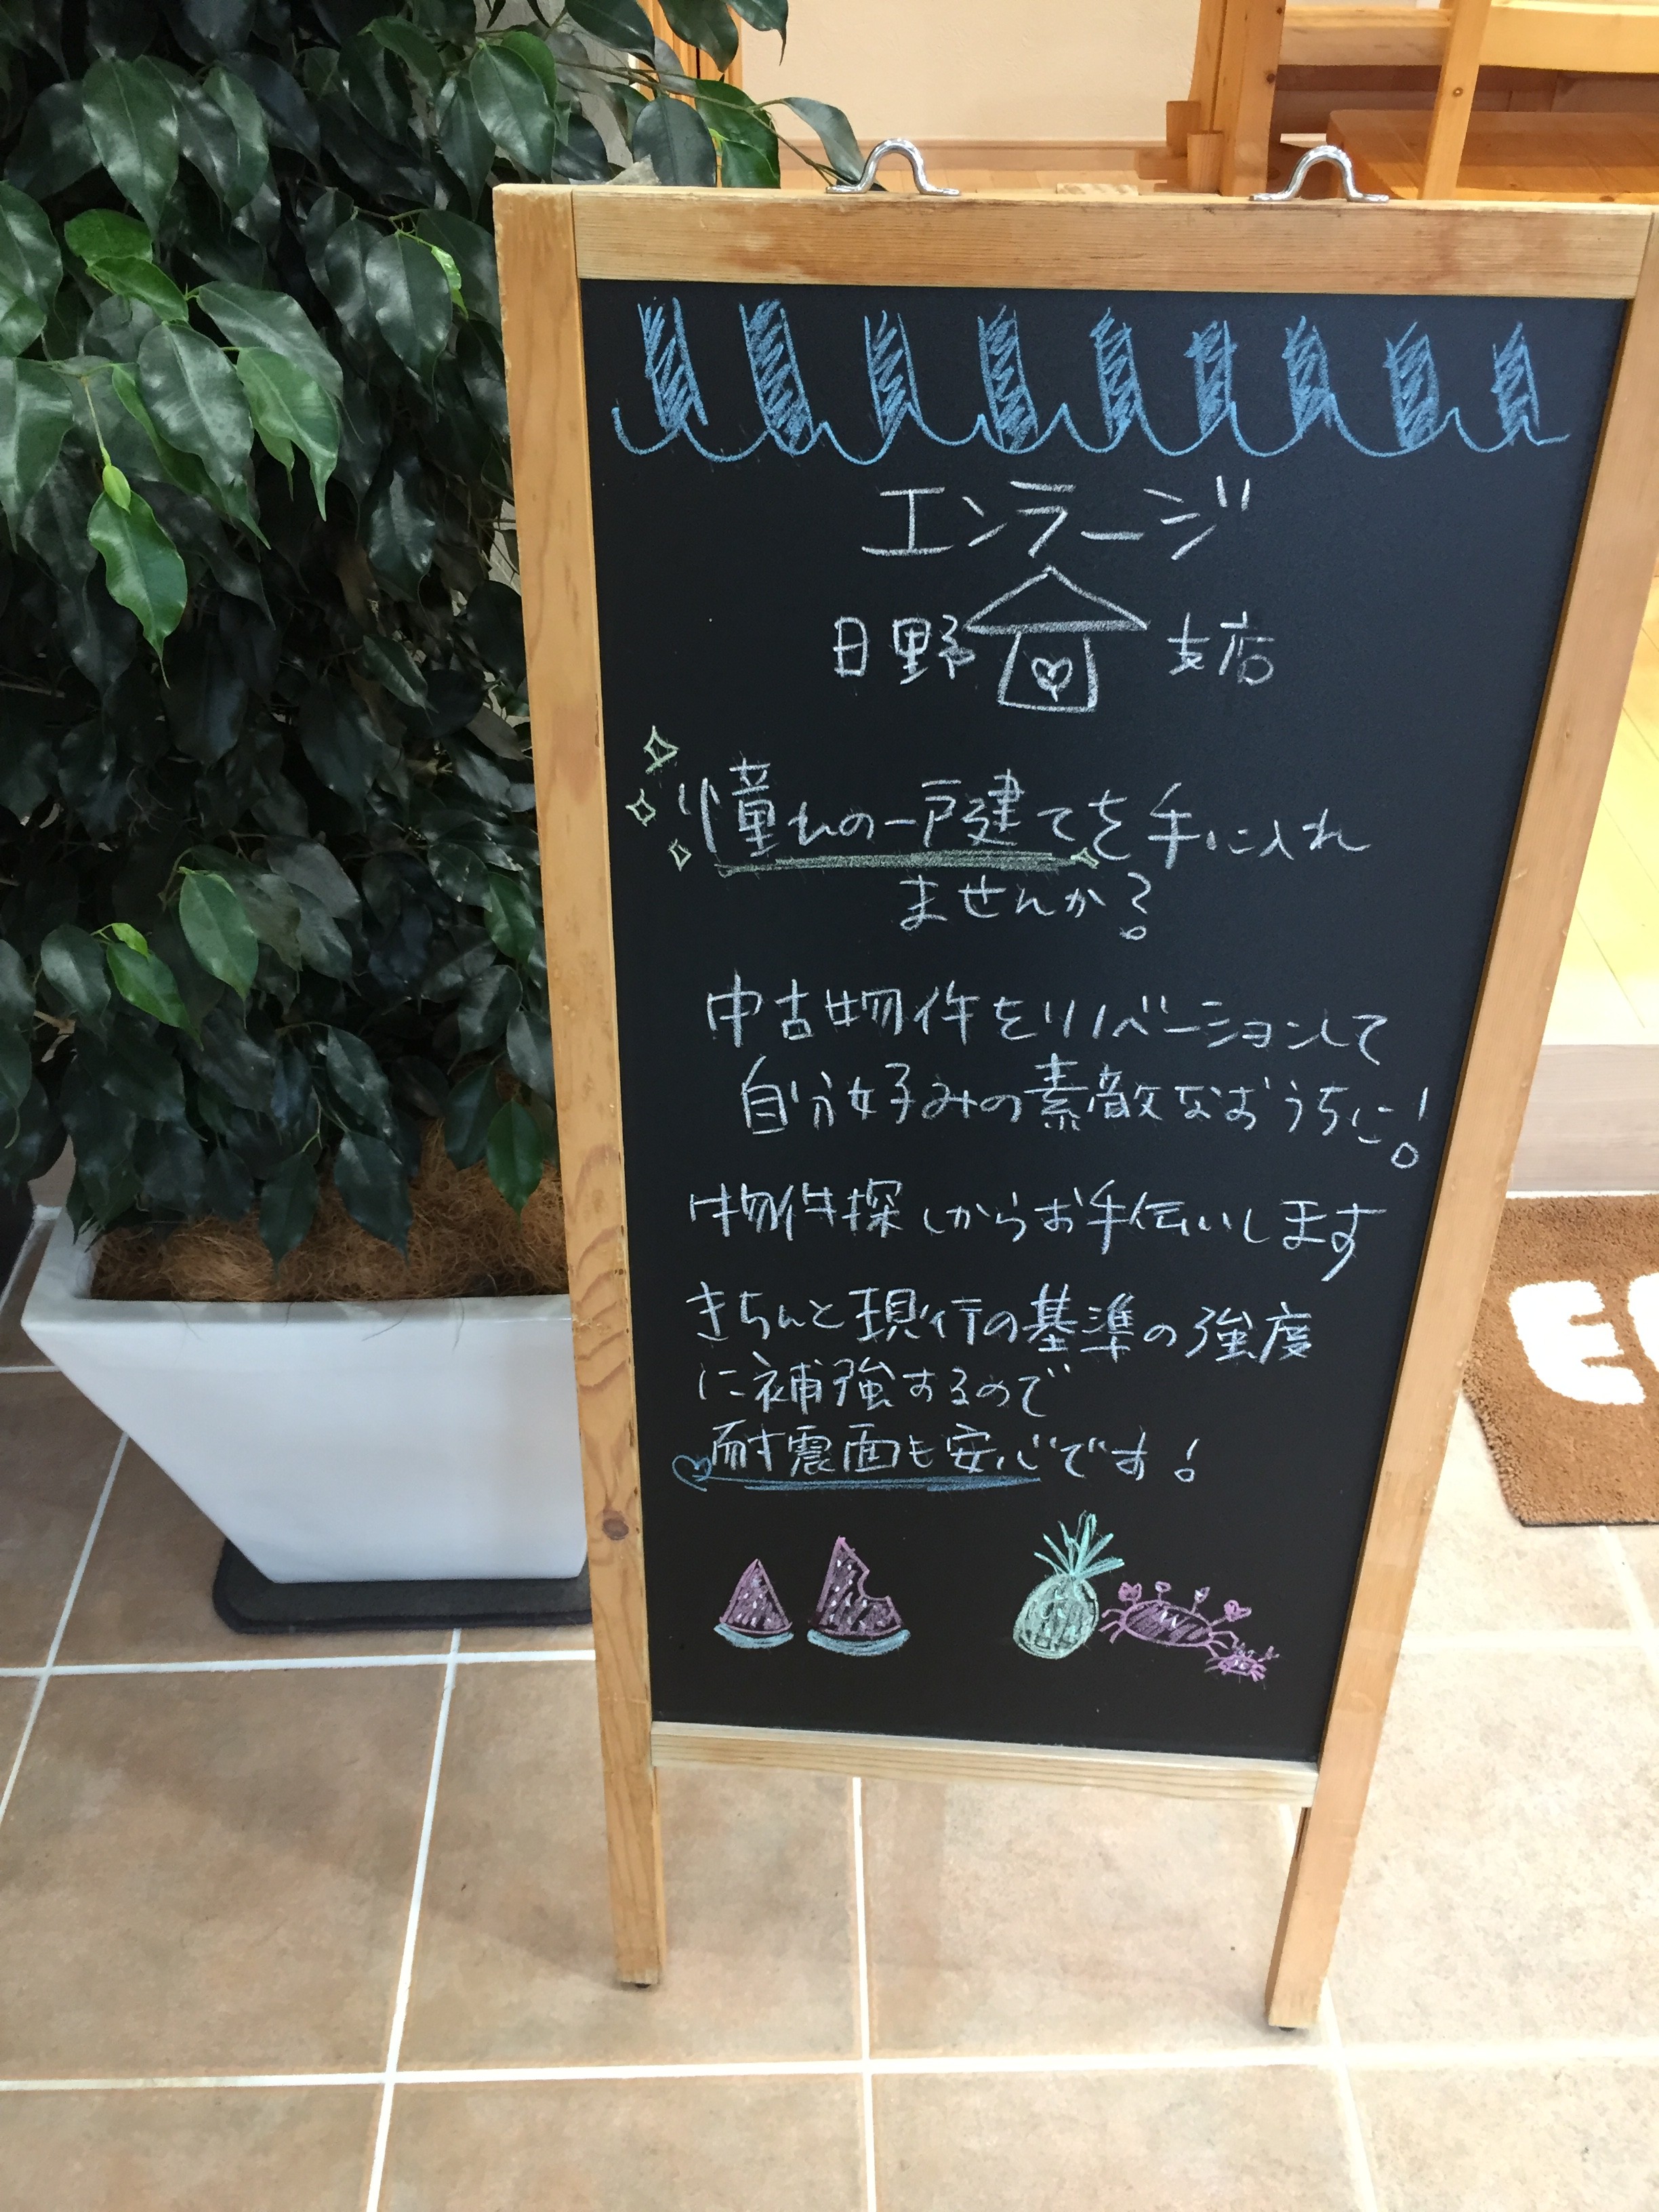 エンラージ
日野 支店
憧れの一戸建てを手に入れ
ませんか?
中古物件をリノベーションして
自分好みの素敵なおうちに!
物件探しからお手伝いします
きちんと現行の基準の強度
に補強するので
耐震面も安心です!